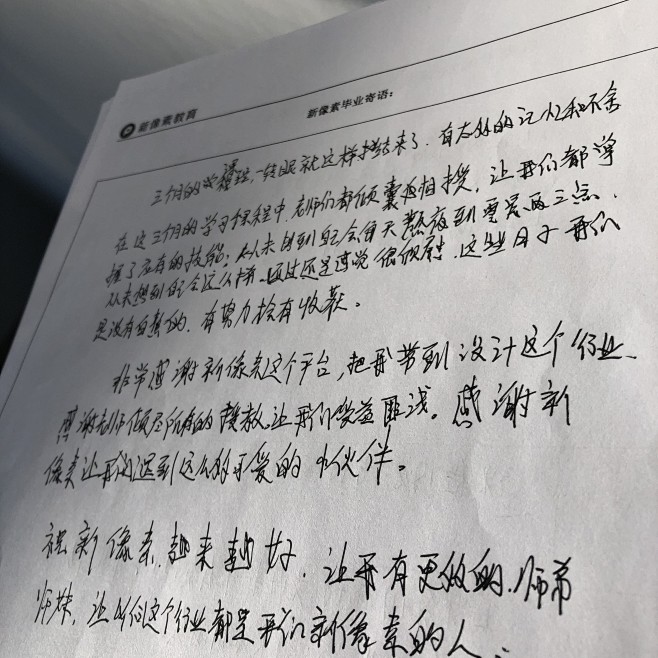 新像素教育
新像素毕业寄语：
三个月的课程，一转眼就这样接结来了．有太多的记忆和不舍
在这三个月的学习课程中．老师们都倾囊归授，让我们都掌
握了应有的技能；从未想到自己会每天熬夜到零晨两三点．
从未想到自己会这么样．通过还是感觉很欣慰．这些日子我们
是没有白熬的．有努力检有收获。
非常感谢新像素这个平台，把我带到设计这个行业．
感谢老师倾尽所有的教，让我们受益匪浅。感谢新
像素让我们遇到这么多可爱的小伙伴。
祝新像素越来越好．让我有更多的师弟
师妹．让以后这个行业都是我们新像素的人．